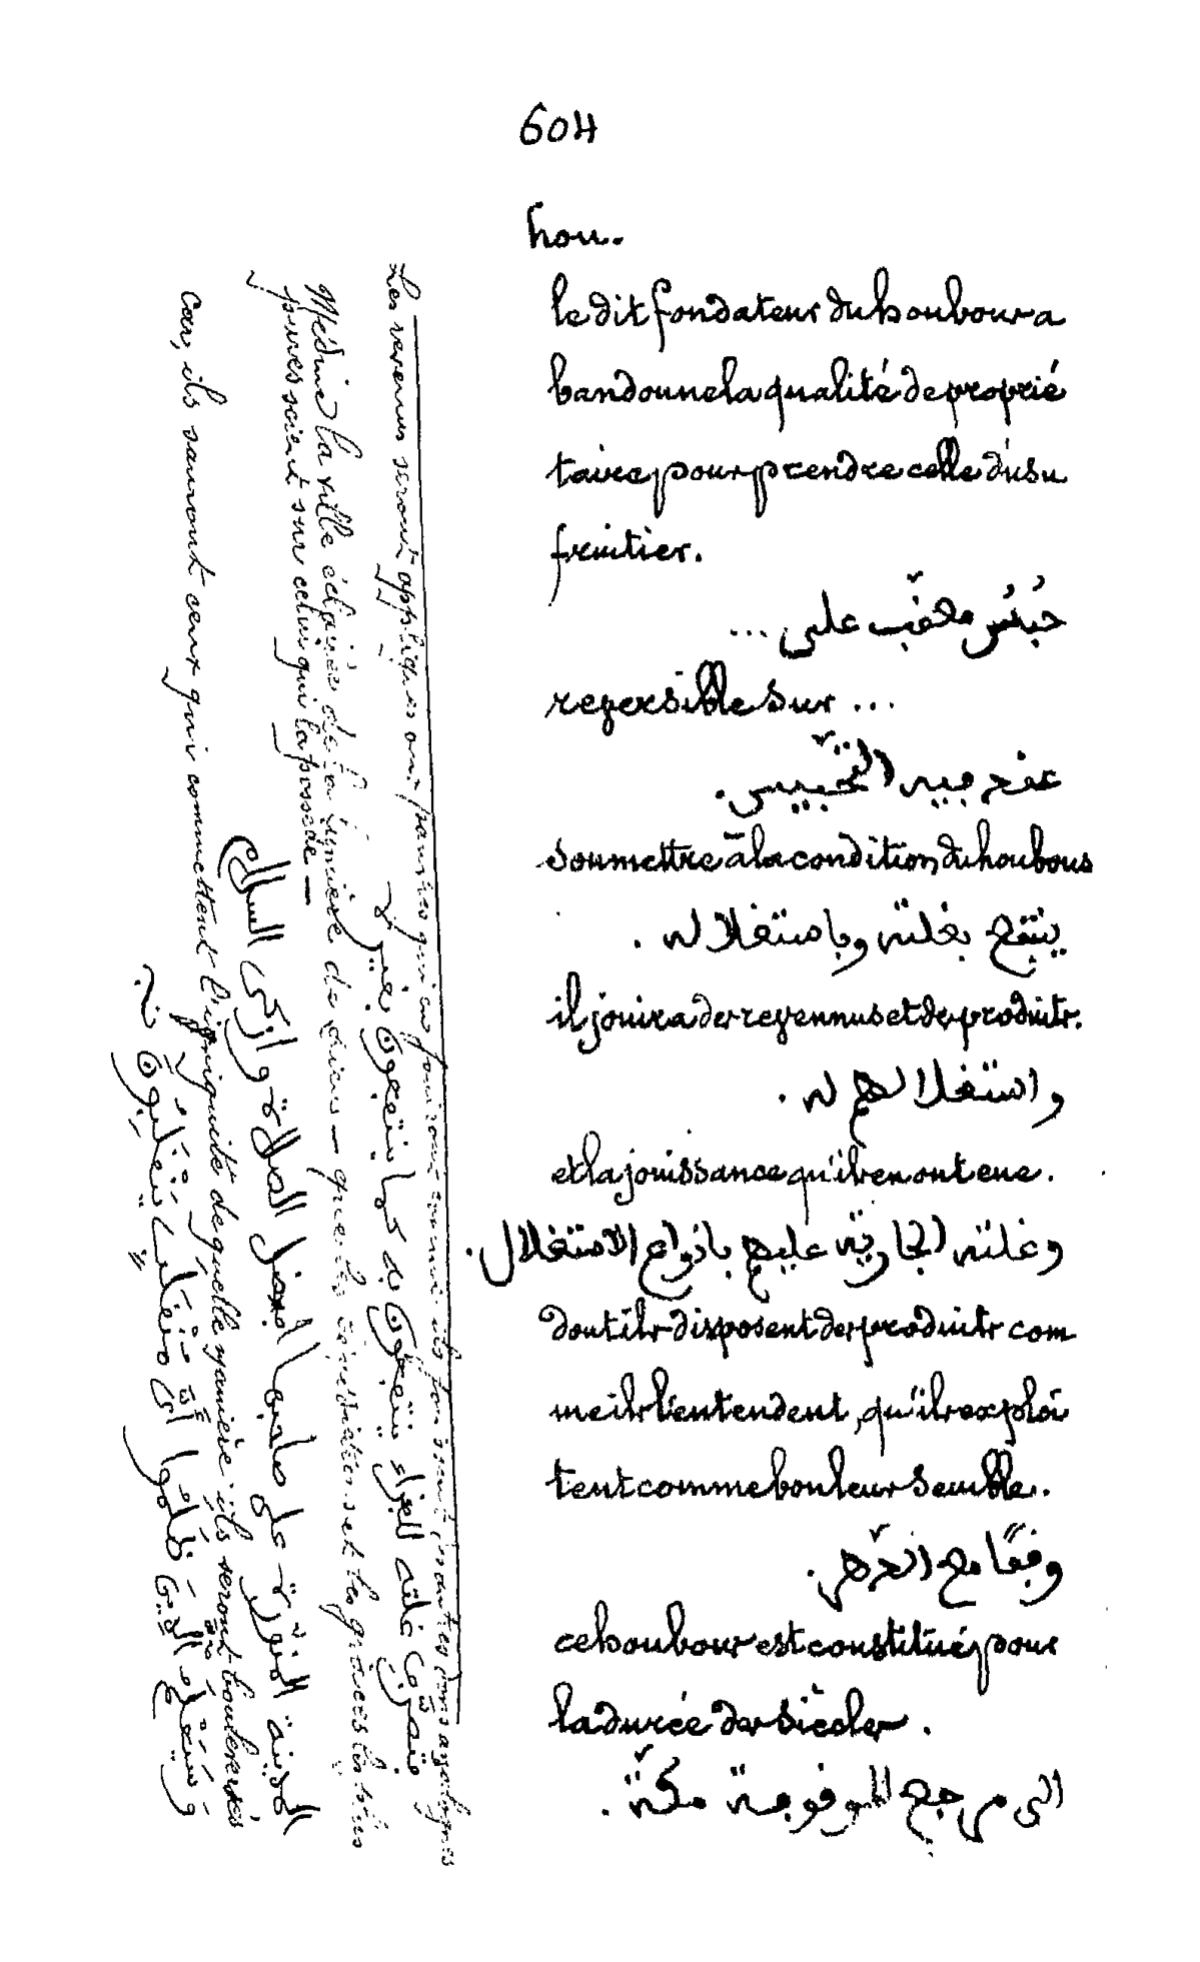 604
hou.
le dit fondateur du houbour a
bandonne la qualité de proprié
taire pour prendre celle d'usu
fruitier.
حُبُس معقّب على ...
reversible sur ...
عقد فيه التّحبيس.
soumettre à la condition du houbous
ينتفع بغلته وباستغلاله.
il jouira des revennus et des produits.
واستغلالهم له.
et la jouissance qu'ils en ont eue.
وغلته الجارية عليهم بانواع الاستغلال.
dont ils disposent des produits com
me ils l'entendent, qu'ils exploi
tent comme bon leur semble.
وقفًا مع الدّهر.
ce houbour est constitué pour
la durée des siècles.
الى مرجع الموقوفة مكّة.
Les revenus seront appliqués aux pauvres qui en jouiront comme ils jouissent d'autres dons analogues
فتصرف غلته للفقراء ينتفعون به كما ينتفعون بغيره
Médine la ville éclairée de la lumière de dieu — que les bénédictions et les grâces les plus
pures soient sur celui qui la possède —
المدينة المنوّرة على صاحبها افضل الصلاة وازكى السلام
Car, ils sauront ceux qui commettent l'iniquité de quelle manière ils seront boulversés
وَسَيَعْلَمُ الَّذِينَ ظَلَمُوا أَيَّ مُنقَلَبٍ يَنقَلِبُونَ